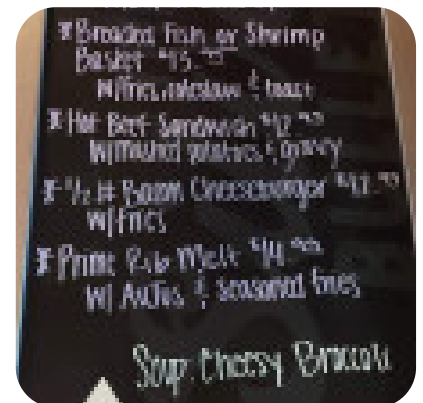 * Breaded Fish or Shrimp
Basket
w/fries, coleslaw & toast
* Hot Beef Sandwich
w/mashed potatoes & gravy
* 1/2 # Bacon Cheeseburger
w/fries
* Prime Rib Melt
w/ AuJus & seasoned fries
Soup: Cheesy Broccoli